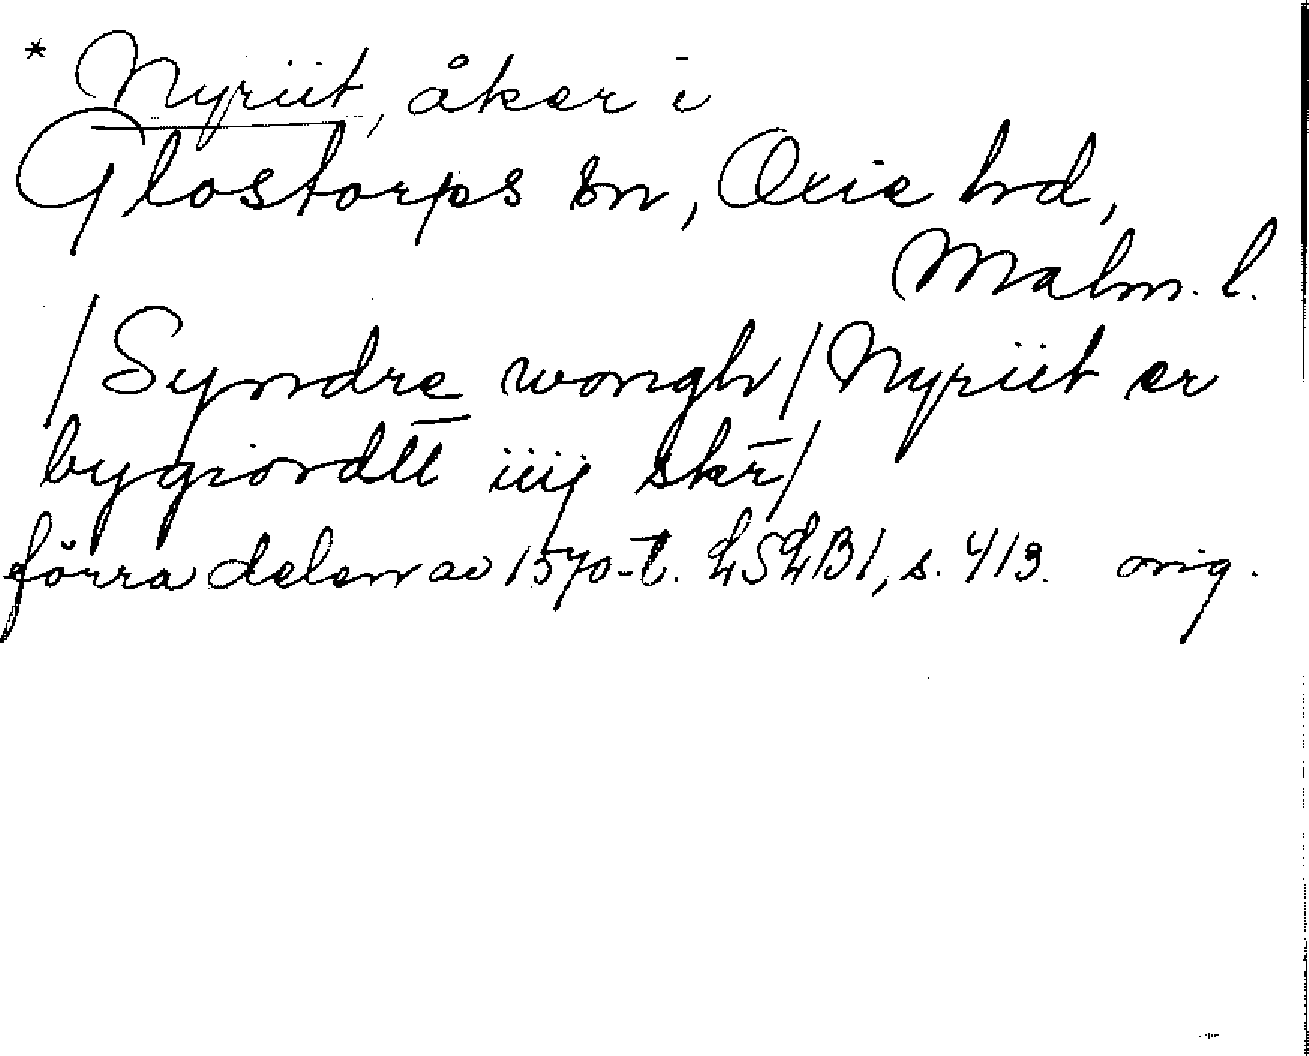 * Nyriit, åker i
Glostorps sn, Oxie hd,
Malm. l.
/Syndre wongh/ Nyriit er
bygiordtt iiij skr̄/
förra delen av 1570-t. LSLB1, s. 413. orig.